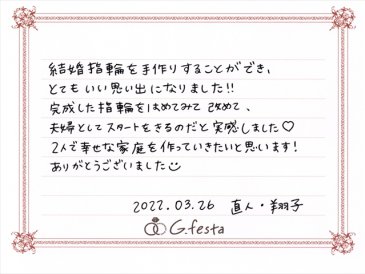 結婚指輪を手作りすることができ、
とてもいい思い出になりました!!
完成した指輪をはめてみて改めて、
夫婦としてスタートをきるのだと実感しました♡
2人で幸せな家庭を作っていきたいと思います!
ありがとうございました
2022.03.26 直人・翔子
G.festa